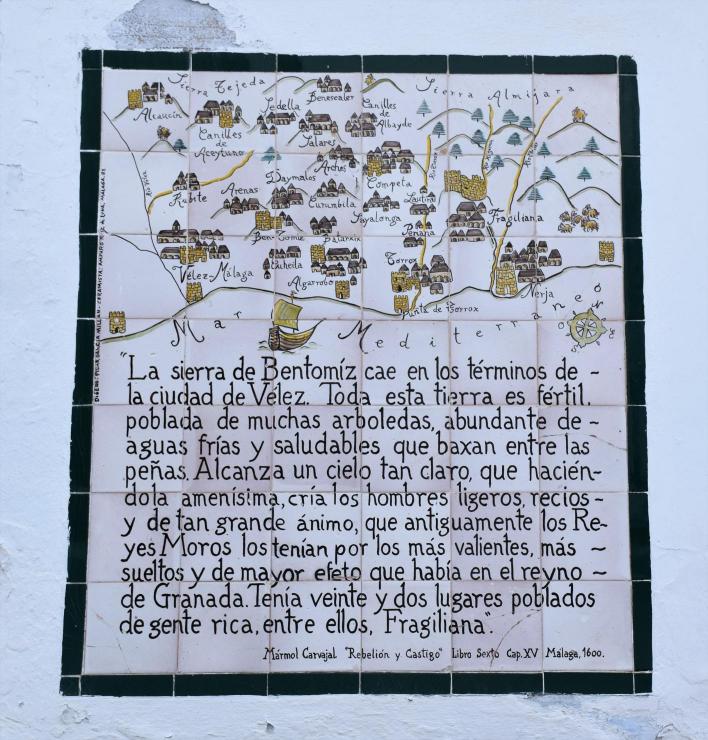 Sierra Tejeda
Sierra Almijara
Alcaucín
Canilles de Aceytuno
Sedella
Benescaler
Canilles de Albayde
Salares
Arches
Daymalos
Competa
Rubite
Arenas
Curumbila
Sayalonga
Lautin
Fragiliana
Periana
Ben-Tomiz
Batarxix
Vélez-Málaga
Algarrobo
Torrox
Nerja
Punta de Torrox
Mar Mediterraneo
"La sierra de Bentomíz cae en los términos de ~
la ciudad de Vélez. Toda esta tierra es fértil,
poblada de muchas arboledas, abundante de ~
aguas frías y saludables que baxan entre las
peñas. Alcanza un cielo tan claro, que hacién-
dola amenísima, cría los hombres ligeros, recios ~
y de tan grande ánimo, que antiguamente los Re-
yes Moros los tenían por los más valientes, más ~
sueltos y de mayor efeto que había en el reyno ~
de Granada. Tenía veinte y dos lugares poblados
de gente rica, entre ellos, Fragiliana".
Mármol Carvajal "Rebelión y Castigo" Libro Sexto Cap. XV Málaga, 1600.